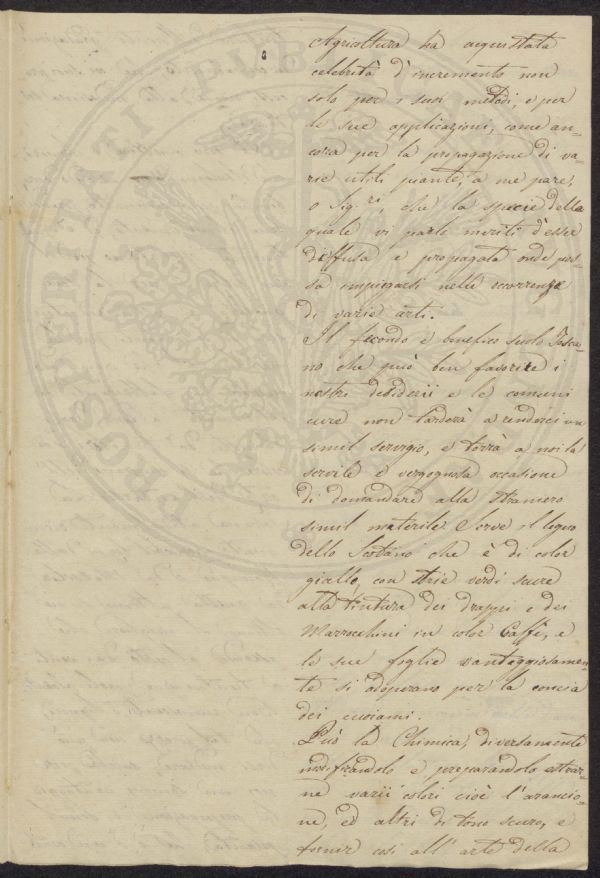 Agricoltura ha acquistata
celebrità d'incremento non
solo per i suoi metodi, e per
le sue applicazioni, come an=
cora per la propagazione di va=
rie utili piante, a me pare,
o Sig.ri, che la specie della
quale vi parlo meriti d'esser
diffusa e propagata onde pos=
sa impiegarsi nelle occorrenze
di varie arti.
Il fecondo e benefico suolo Tosca=
no che può ben favorire i
nostri desiderii e le comuni
cure non tarderà a renderci un
simil servigio, e torrà a noi la
servile e vergognosa occasione
di domandare allo straniero
simil materiale. Serve il legno
dello Scotano che è di color
giallo, con strie verdi scure
alla tintura dei drappi e dei
Marrocchini in color Caffè, e
le sue foglie vantaggiosamen
te si adoperano per la concia
dei cuoiami.
Può la Chimica, diversamente
modificandolo e preparandolo estrar=
ne varii colori cioè l'arancio=
ne, ed altri di tono scuro, e
fornir così all'arte della
PROSPERITATI PUBLICAE